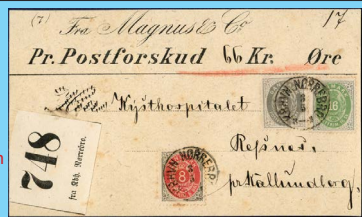 (7) Fra Magnus & Co 17
Pr. Postforskud 66 Kr. Øre
Kysthospitalet
Refsnæs
pr Kallundborg.
748
fra Kbh. Nørrebro.
KJØBHVN. NØRREBRO
8
KJØBHVN. NØRREBRO